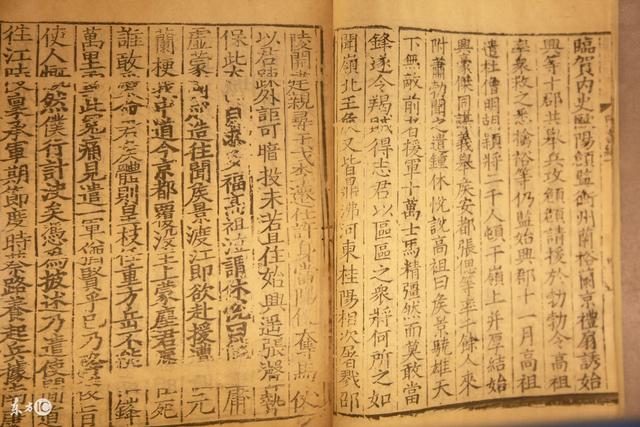 臨賀內史歐陽頠監衡州蘭裕蘭京禮扇誘始
興等十郡共舉兵攻頠頠請援於勃勃令高祖
率衆救之悉擒裕等仍監始興郡十一月高祖
遣杜僧明胡穎將二千人頓于嶺上并厚結始
興豪傑同謀義舉侯安都張偲等率千餘人來
附蕭勃聞之遣鍾休悅說高祖曰侯景驍雄天
下無敵前者援軍十萬士馬精彊然而莫敢當
鋒遂令羯賊得志君以區區之衆將何所之如
聞嶺北王侯又皆鼎沸河東桂陽相次屠戮邵
陵開建親尋干戈李遷仕許身當陽便奪馬仗
以君疎外詎可暗投未若且住始興遥張聲勢
保此太自求多福高祖泣謂休悅曰庸
虛蒙國成造往聞侯景渡江即欲赴援遭元
蘭梗我中道今京都覆没主上蒙塵君辱臣死
誰敢愛命君侯體則皇枝任重方岳不能鋒
萬里雪此冤痛見遣一軍猶賢乎已乃後旨
使人慨然僕行計决矣憑爲披述乃遣使間道
往江陵稟承軍期節度時蔡路養起兵據南